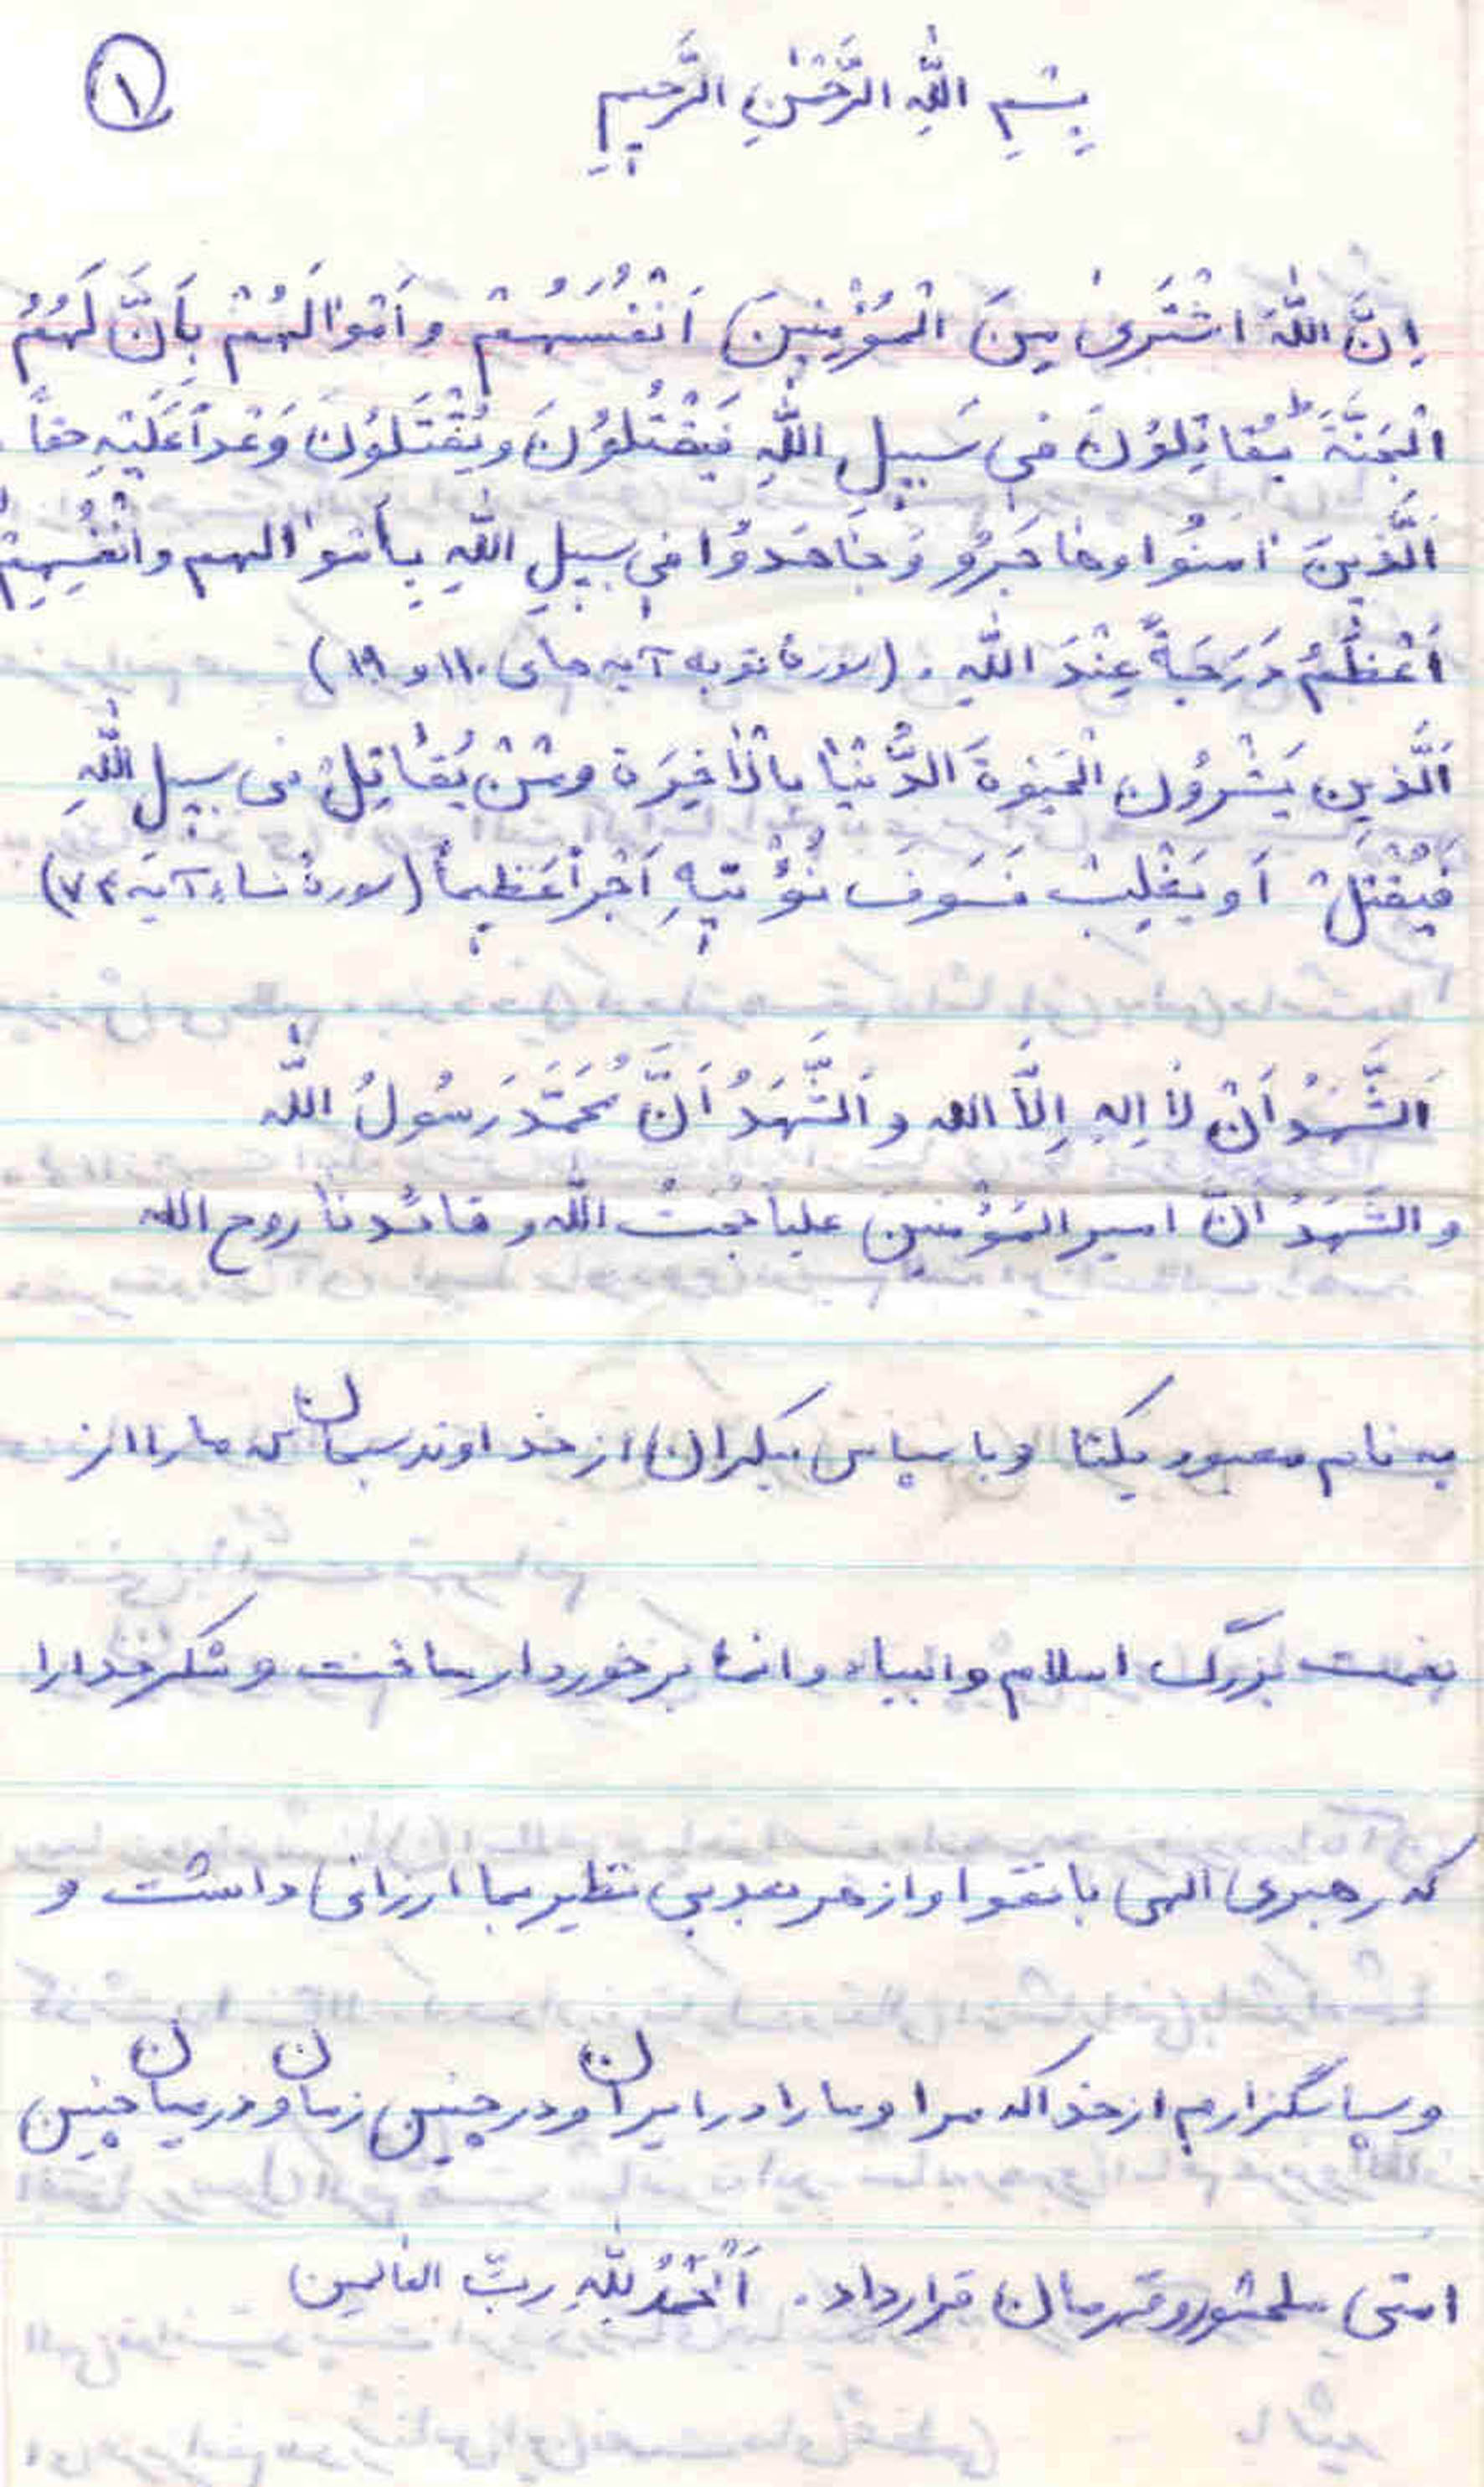 ۱
بِسْمِ اللّٰهِ الرَّحْمٰنِ الرَّحیمِ
اِنَّ اللّٰهَ اشْتَریٰ مِنَ الْمُؤْمِنینَ اَنْفُسَهُمْ وَاَمْوٰالَهُمْ بِاَنَّ لَهُمُ
الْجَنَّةَ یُقاتِلوُنَ فی سَبیلِ اللّٰهِ فَیَقْتُلوُنَ وَیُقْتَلوُنَ وَعْداً عَلَیْهِ حقاً
اَلَّذینَ امَنوُا وهاجَروُ وَجاهَدوُا فی سبیلِ اللّٰهِ بِأموٰالهم وانْفُسِهِمْ
اَعْظَمُ دَرَجَةً عِنْدَ اللّٰهِ . (سورهٔ توبه آیه های ۱۱۰ و ۱۹)
اَلَّذین یَشْروُن الْحَیٰوةَ الدُّنْیٰا بِالْاٰخِرَة ومَنْ یُقٰاتِلْ فی سبیل اللّٰهِ
فَیُقْتَلْ اَو یَغْلِبْ فَسَوفَ نُؤْتیهِ اَجْراً عَظیماً (سورهٔ نساء آیه ۷۴)
اَلشَّهَدُ اَنْ لٰا اِلهِ اِلاَّ الله و اَلشَّهَدُ اَنَّ مُحَمَّدَ رَسُولُ اللّٰه
و الشَهَدُ اَنَّ امیر المُؤمنین علیاً حُجتُ اللّٰه و قائدنا روح الله
به نام معبود یکتا و با سپاس بیکران از خداوند سبحان که ما را از
نعمت بزرگ اسلام و انبیاء و ائمهٔ برخوردار ساخت و شکر خدا را
که رهبری الهی با تقوا و از هر بعد بی نظیر بما ارزانی داشت و
و سپاسگزارم از خدا که مرا و ما را در ایران و در چنین زمان و در میان چنین
امتی سلحشور و قهرمان قرار داد . اَلْحَمْدُ لِلّٰهِ ربّ العالمین